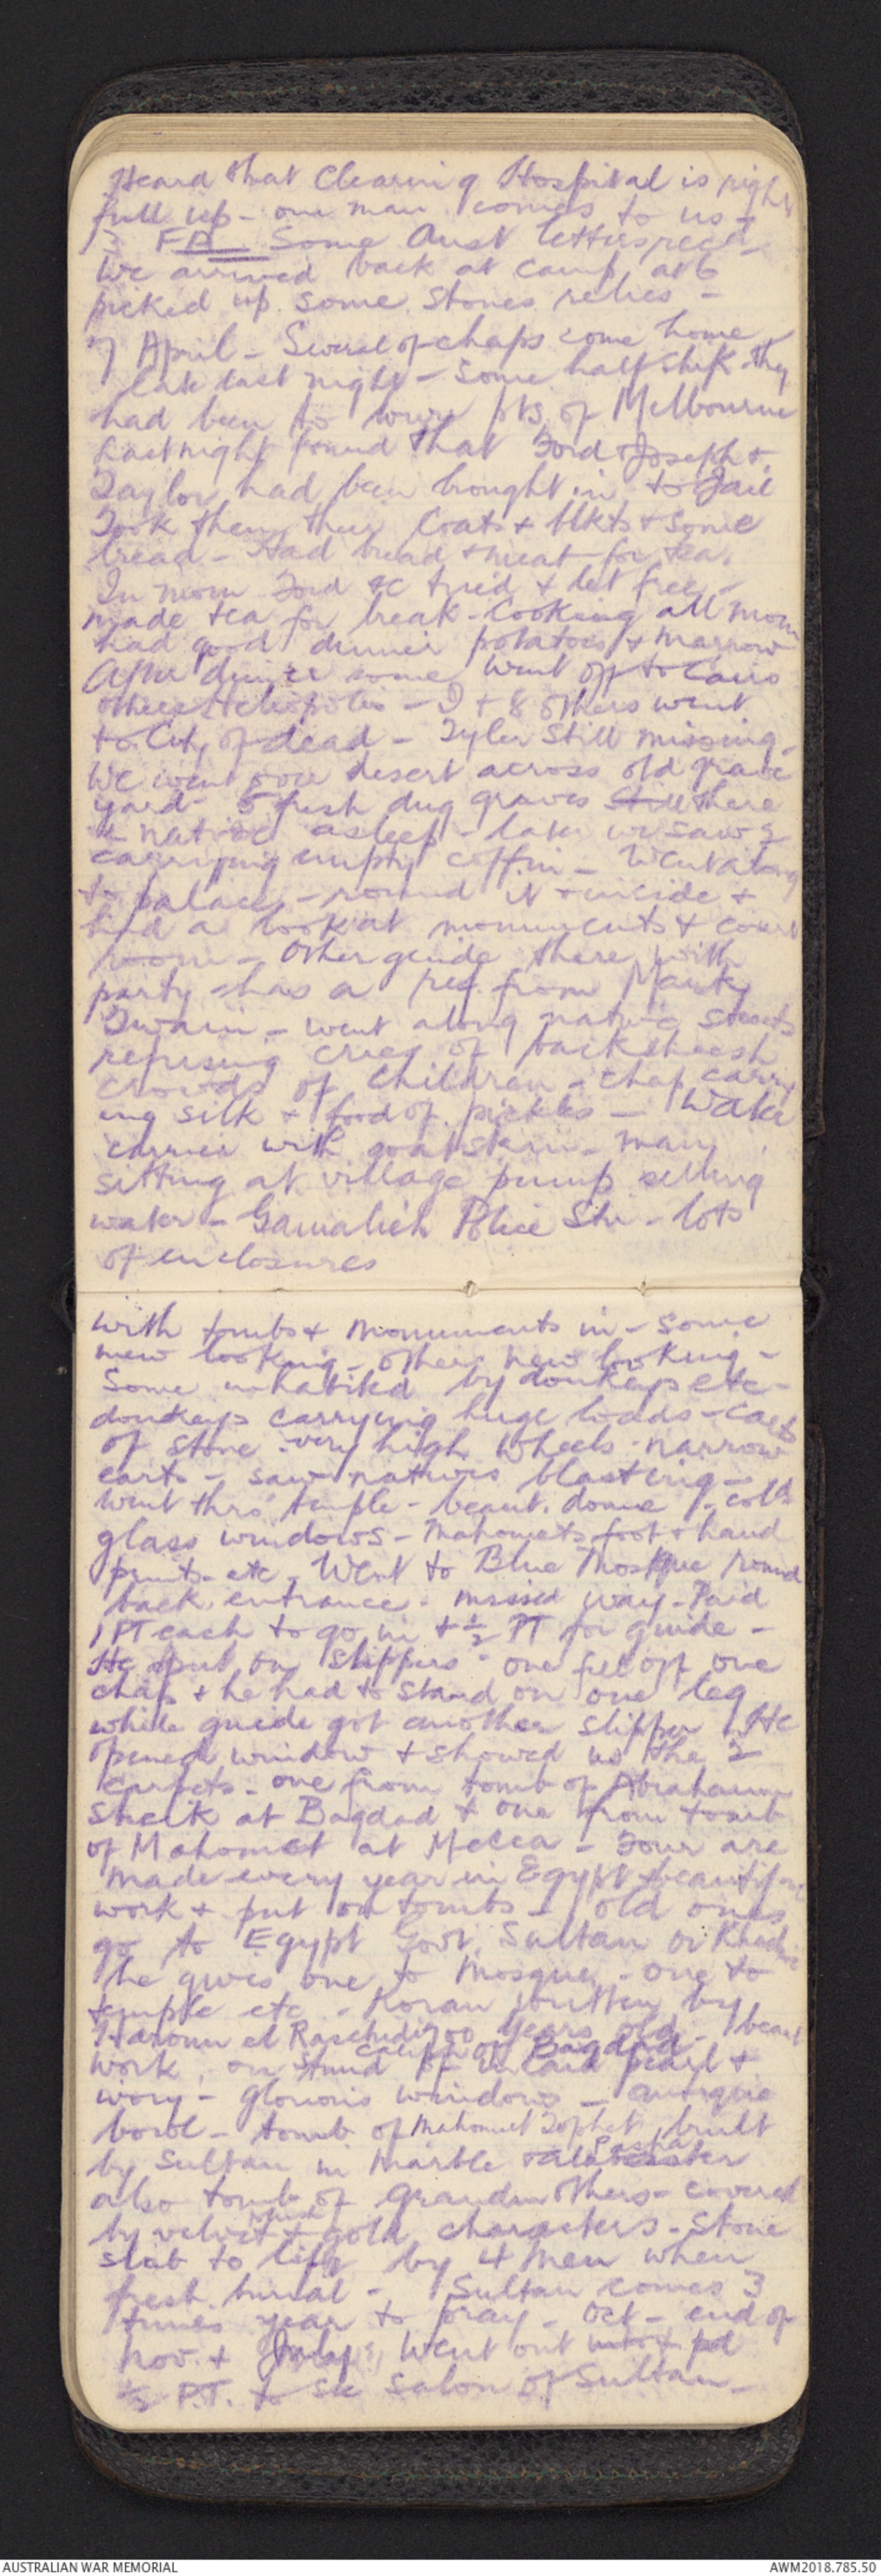 Heard that Clearing Hospital is right
full up - one man comes to us -
3 FA Some Aust letters recd -
We arrived back at camp at 6
picked up some stones relics -
7 April - Several of chaps come home
late last night - some half shik. They
had been to lowr pts of Melbourne
Last night found that Ford Joseph &
Taylor had been brought in to Jail
Took them their Coats & blkts & some
bread - Had bread & meat for tea.
In morn Ford &c tried & let free -
made tea for break - Cooking all morn
had good dinner potatoes & marrow
After dinner some went off to Cairo
others Heliopolis - I & 8 others went
to City of dead - Tyler still missing.
We went over desert across old grave
yard - 5 fresh dug graves there
& native asleep - later we saw 2
carrying empty coffin - Went along
to palace - round it & inside &
had a look at monuments & court
room - Other guide there with
party - has a ref. from Mark
Twain - went along native streets
refusing cries of backsheesh
crowds of children - chap carry
ing silk & food of pickles - Water
carrier with goatskin - man
sitting at village pump selling
water - Gamalieh Police Stn - lots
of enclosures
with tombs & monuments in - some
new looking - others new looking -
Some inhabited by donkeys etc -
donkeys carrying huge loads -
of stone - very high wheels - narrow
carts - saw natives blasting -
went thro' temple - beaut. dome & cold
glass windows - Mahomets foot & hand
prints etc. Went to Blue Mosque round
back entrance - missed way - Paid
1 PT each to go in & ½ PT for guide -
He put on slippers - one fell off one
chap & he had to stand on one leg
while guide got another slipper. He
opened window & showed us the 2
carpets - one from tomb of Abraham
Sheik at Bagdad & one from tomb
of Mahomet at Mecca - Four are
made every year in Egypt beautiful
work & put on tombs - old ones
go to Egypt Govt Sultan or Khedive
he gives one to Mosque - one to
temple etc. - Koran written by
Haroun el Raschid 1200 years old - beaut
Caliph of Bagdad
work, on stand of inlaid pearl &
ivory - glorious windows - antique
bowl - tomb of Mahomet built
by Sultan in marble & alabaster
also tomb of Grandmothers - covered
by velvet & gold characters - Stone
slab to lift by 4 men when
fresh burial - Sultan comes 3
times year to pray - Oct - end of
Nov. & July, Went out pd
½ P.T. to see Salon of Sultan -
AUSTRALIAN WAR MEMORIAL
AWM2018.785.50